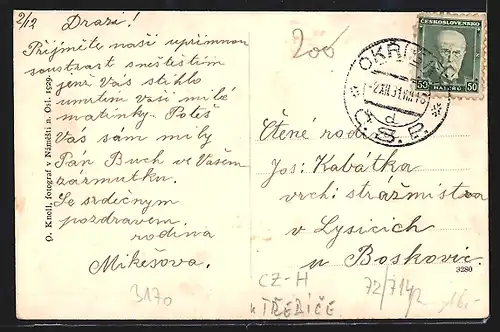 2/12
Drazí!
Přijměte naši upřímnou
soustrast s neštěstím
jenž Vás stihlo
umrtím Vaší milé
matinky. Potěš
Vás sám milý
Pán Buch ve Vašem
zármutku.
Se srdečným
pozdravem
rodina
Mikešova.
3170
O. Knoll, fotograf v Náměšti n. Osl. 1929.
200
OKŘÍ
-2.XII.31
d
Č.S.P.
ČESKOSLOVENSKO
50 50
HALÉŘŮ
Ctěné rodi
Jos: Kabátka
vrch: stražmistra
v Lysicích
u Boskovic.
3280
CZ-H
TŘEBÍČE
72/714